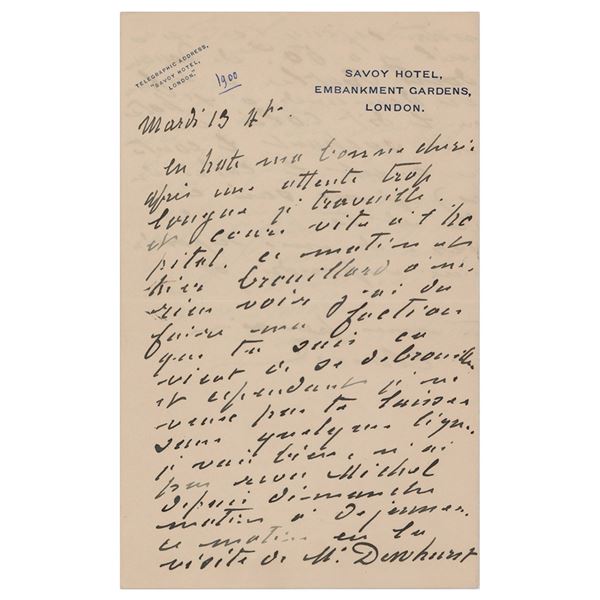 TELEGRAPHIC ADDRESS,
"SAVOY HOTEL,
LONDON."
1900
SAVOY HOTEL,
EMBANKMENT GARDENS,
LONDON.
Mardi 13
en hate ma bonne cherie
après une attente trop
longue je travaille
et cours vite a l'ho
pital. ce matin et
hier brouillard a ne
rien voir j'ai du
faire ma faction
que tu sais en
vient de se debrouiller
et cependant je ne
veux pas te laisser
sans quelques lignes.
je vais bien, n'ai
pas revu Michel
depuis dimanche
matin a dejeuner.
ce matin eu la
visite de Mr. Dewhurst